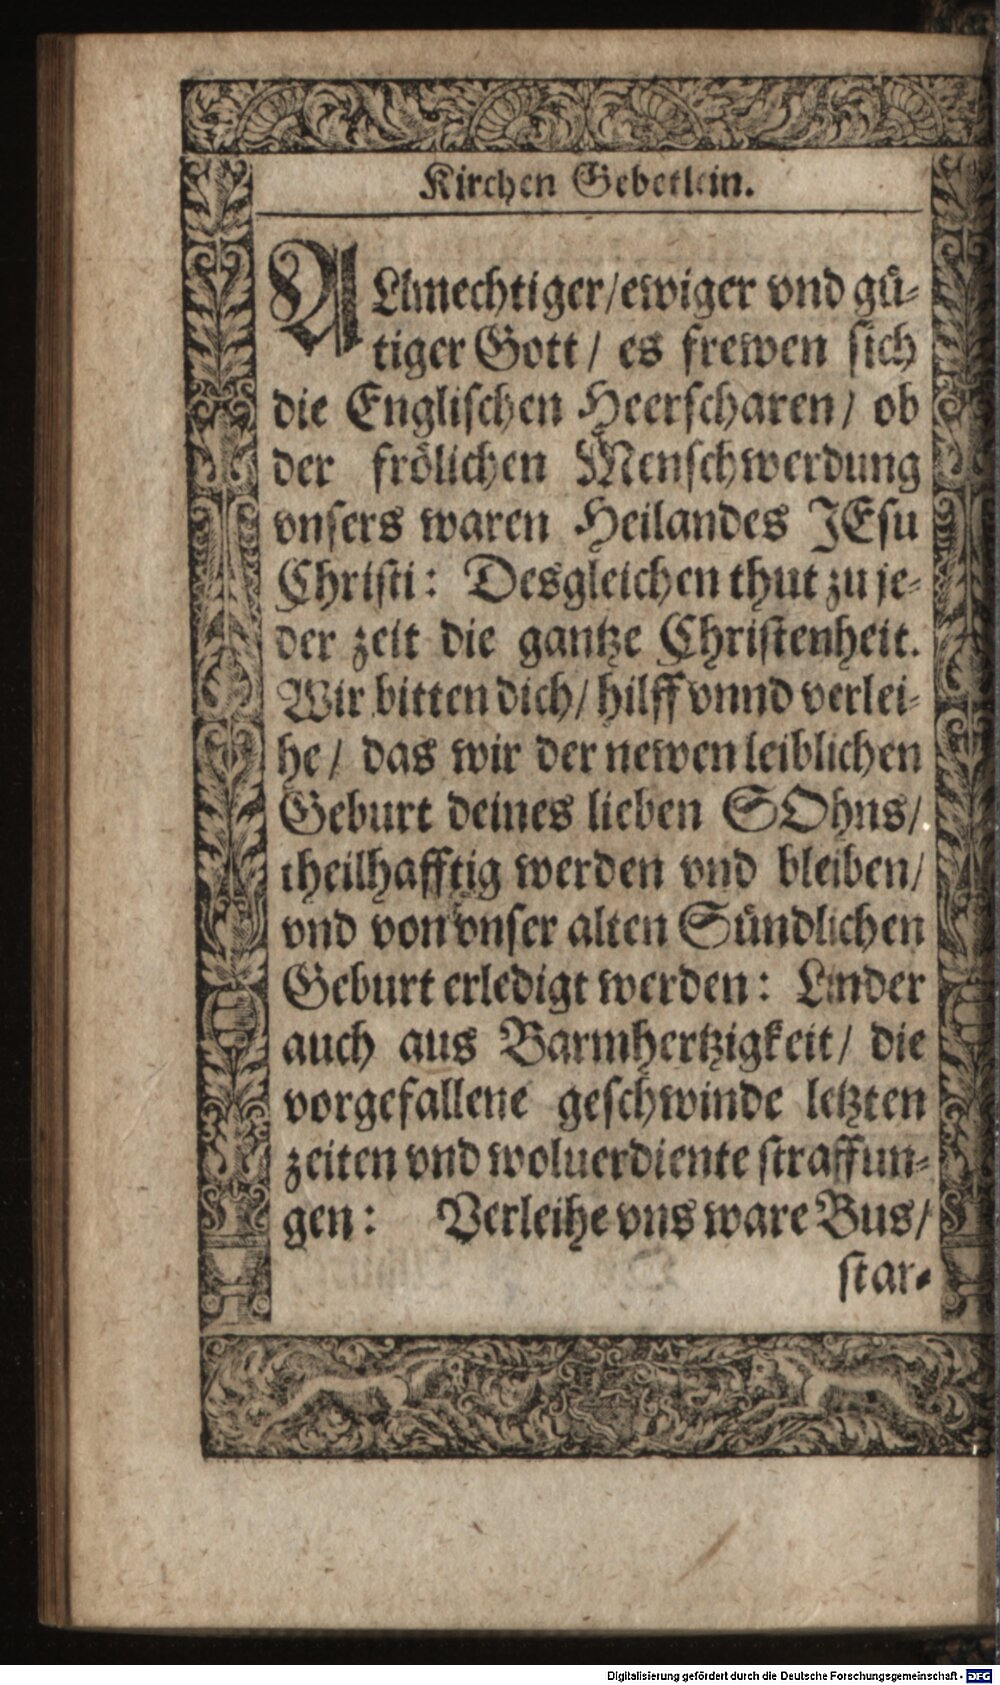 Kirchen Gebetlein.
ALlmechtiger/ewiger vnd gü-
tiger Gott / es frewen sich
die Englischen Heerscharen / ob
der frölichen Menschwerdung
vnsers waren Heilandes JEsu
Christi: Desgleichen thut zu je-
der zeit die gantze Christenheit.
Wir bitten dich / hilff vnnd verlei-
he / das wir der newen leiblichen
Geburt deines lieben SOhns /
theilhafftig werden vnd bleiben /
vnd von vnser alten Sündlichen
Geburt erledigt werden: Linder
auch aus Barmhertzigkeit / die
vorgefallene geschwinde letzten
zeiten vnd woluerdiente straffun-
gen: Verleihe vns ware Bus /
star-
Digitalisierung gefördert durch die Deutsche Forschungsgemeinschaft - DFG